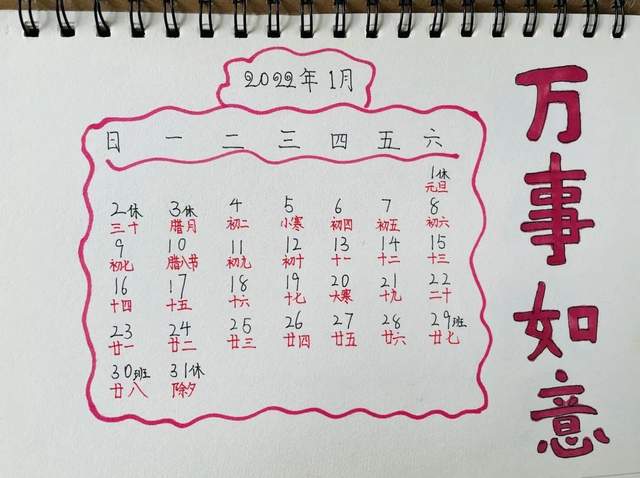 2022年1月
日 一 二 三 四 五 六
1休
元旦
2休 3休 4 5 6 7 8
三十 腊月 初二 小寒 初四 初五 初六
9 10 11 12 13 14 15
初七 腊八节 初九 初十 十一 十二 十三
16 17 18 19 20 21 22
十四 十五 十六 十七 大寒 十九 二十
23 24 25 26 27 28 29班
廿一 廿二 廿三 廿四 廿五 廿六 廿七
30班 31休
廿八 除夕
万事如意